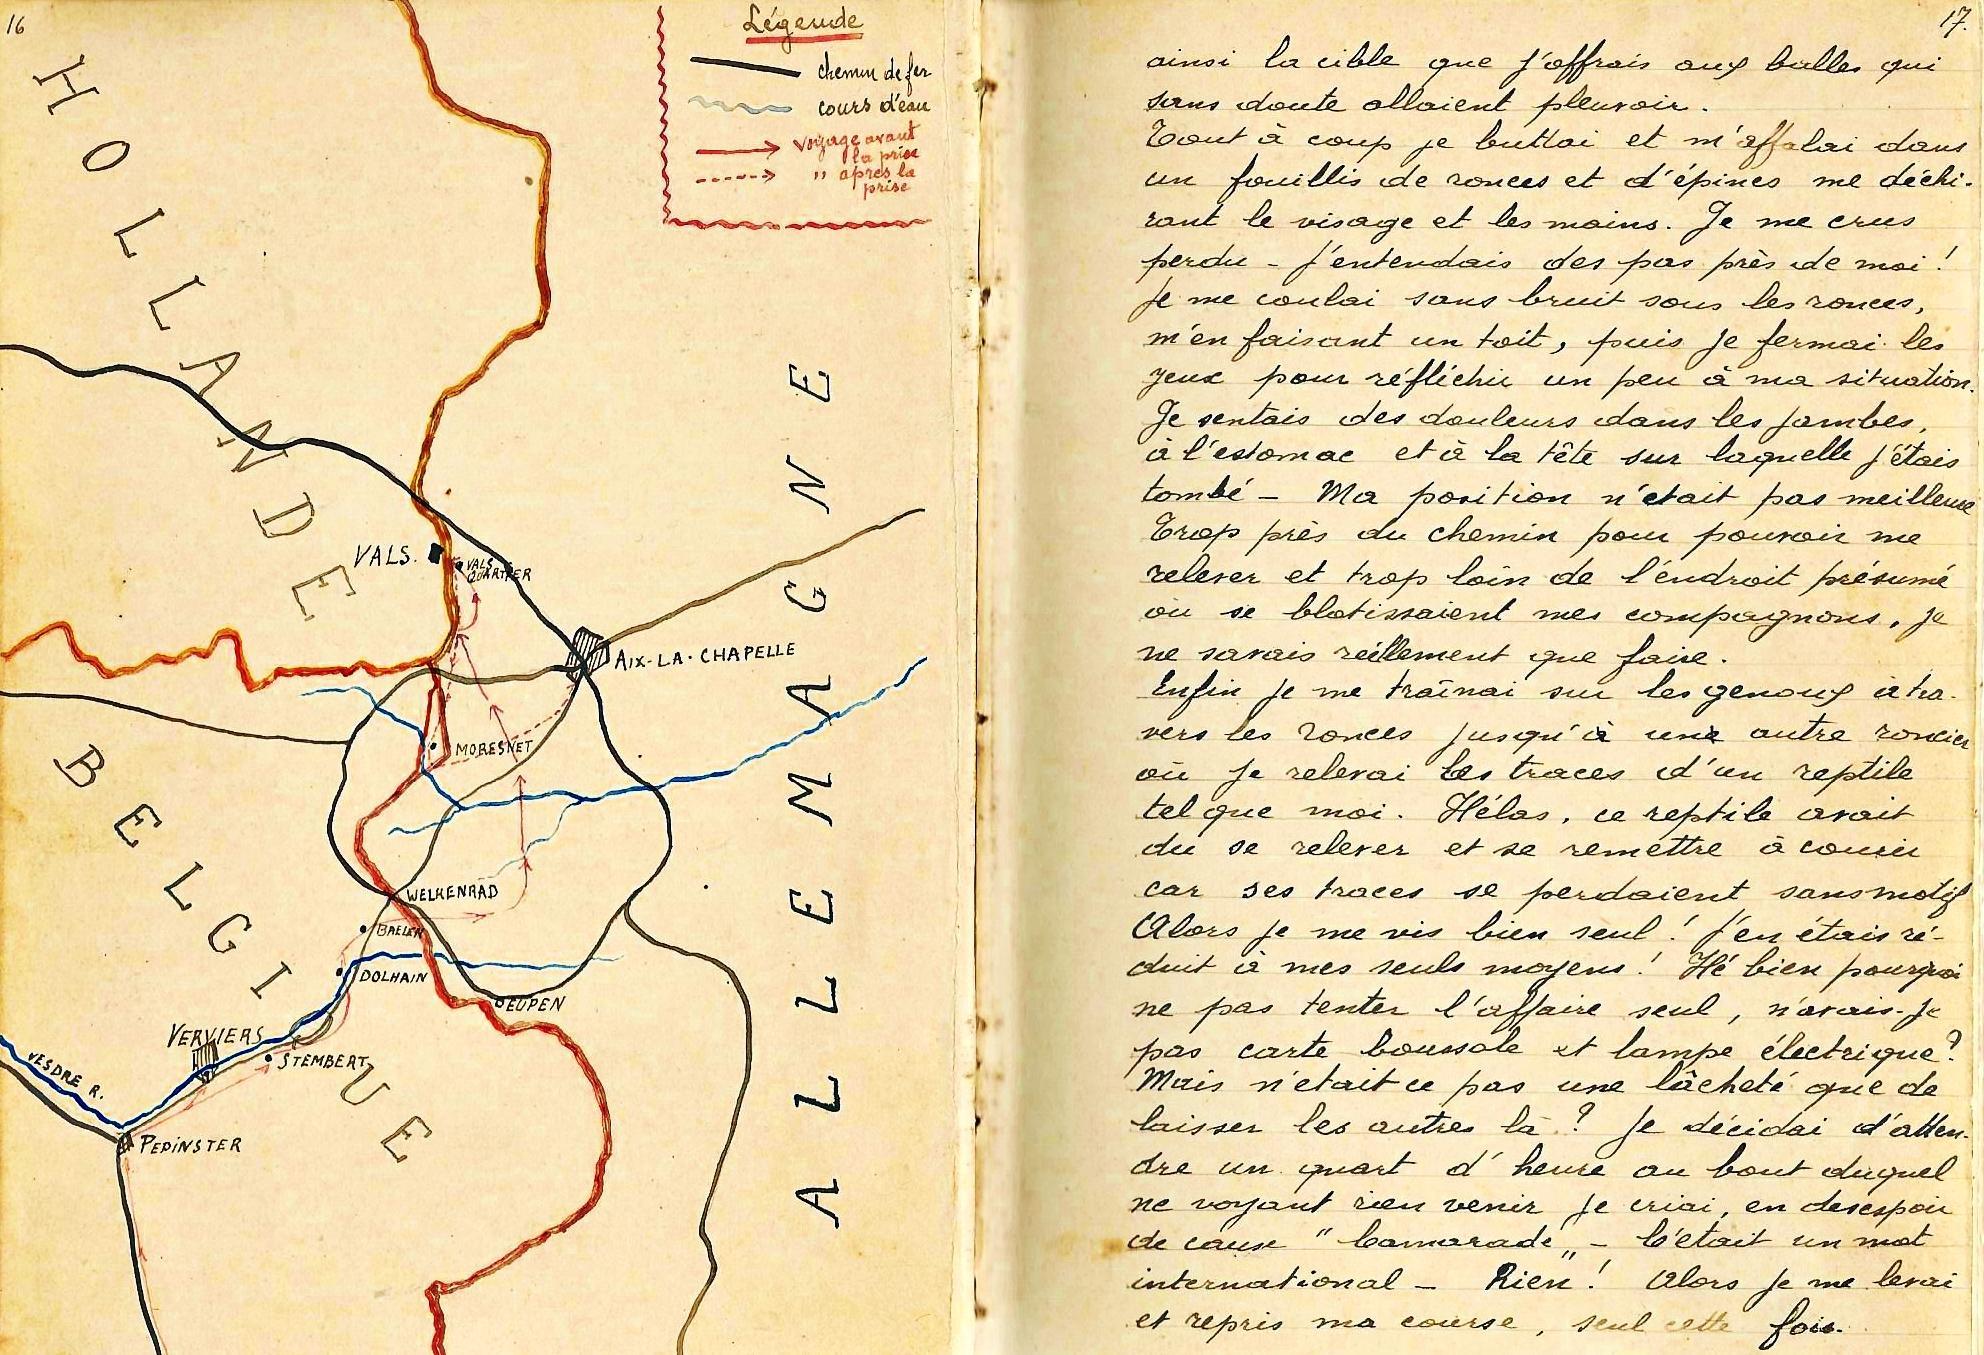 16
HOLLANDE
Légende
chemin de fer
cours d'eau
Voyage avant
la prise
" après la
prise
ALLEMAGNE
VALS.
VALS
QUARTIER
AIX-LA-CHAPELLE
MORESNET
BELGIQUE
WELKENRAD
BAELEN
DOLHAIN
EUPEN
VERVIERS
STEMBERT
VESDRE R.
PEPINSTER
17.
ainsi la cible que j'offrais aux balles qui
sans doute allaient pleuvoir.
Tout à coup je buttai et m'affalai dans
un fouillis de ronces et d'épines me déchi-
rant le visage et les mains. Je me crus
perdu - J'entendais des pas près de moi!
Je me coulai sans bruit sous les ronces,
m'en faisant un toit, puis je fermai les
yeux pour réfléchir un peu à ma situation.
Je sentais des douleurs dans les jambes,
à l'estomac et à la tête sur laquelle j'étais
tombé - Ma position n'etait pas meilleure
Trop près du chemin pour pouvoir me
relever et trop loin de l'endroit présumé
où se blotissaient mes compagnons, je
ne savais réellement que faire.
Enfin je me traînai sur les genoux à tra-
vers les ronces jusqu'à une autre roncier
où je relevai les traces d'un reptile
tel que moi. Hélas, ce reptile avait
du se relever et se remettre à courir
car ses traces se perdaient sans motif
Alors je me vis bien seul! J'en étais ré-
duit à mes seuls moyens! Hé bien pourquoi
ne pas tenter l'affaire seul, n'avais-je
pas carte boussole et lampe électrique?
Mais n'etait ce pas une lâcheté que de
laisser les autres là? Je décidai d'atten-
dre un quart d'heure au bout duquel
ne voyant rien venir je criai, en desespoir
de cause "Camarade" - C'était un mot
international - Rien! Alors je me levai
et repris ma course, seul cette fois.